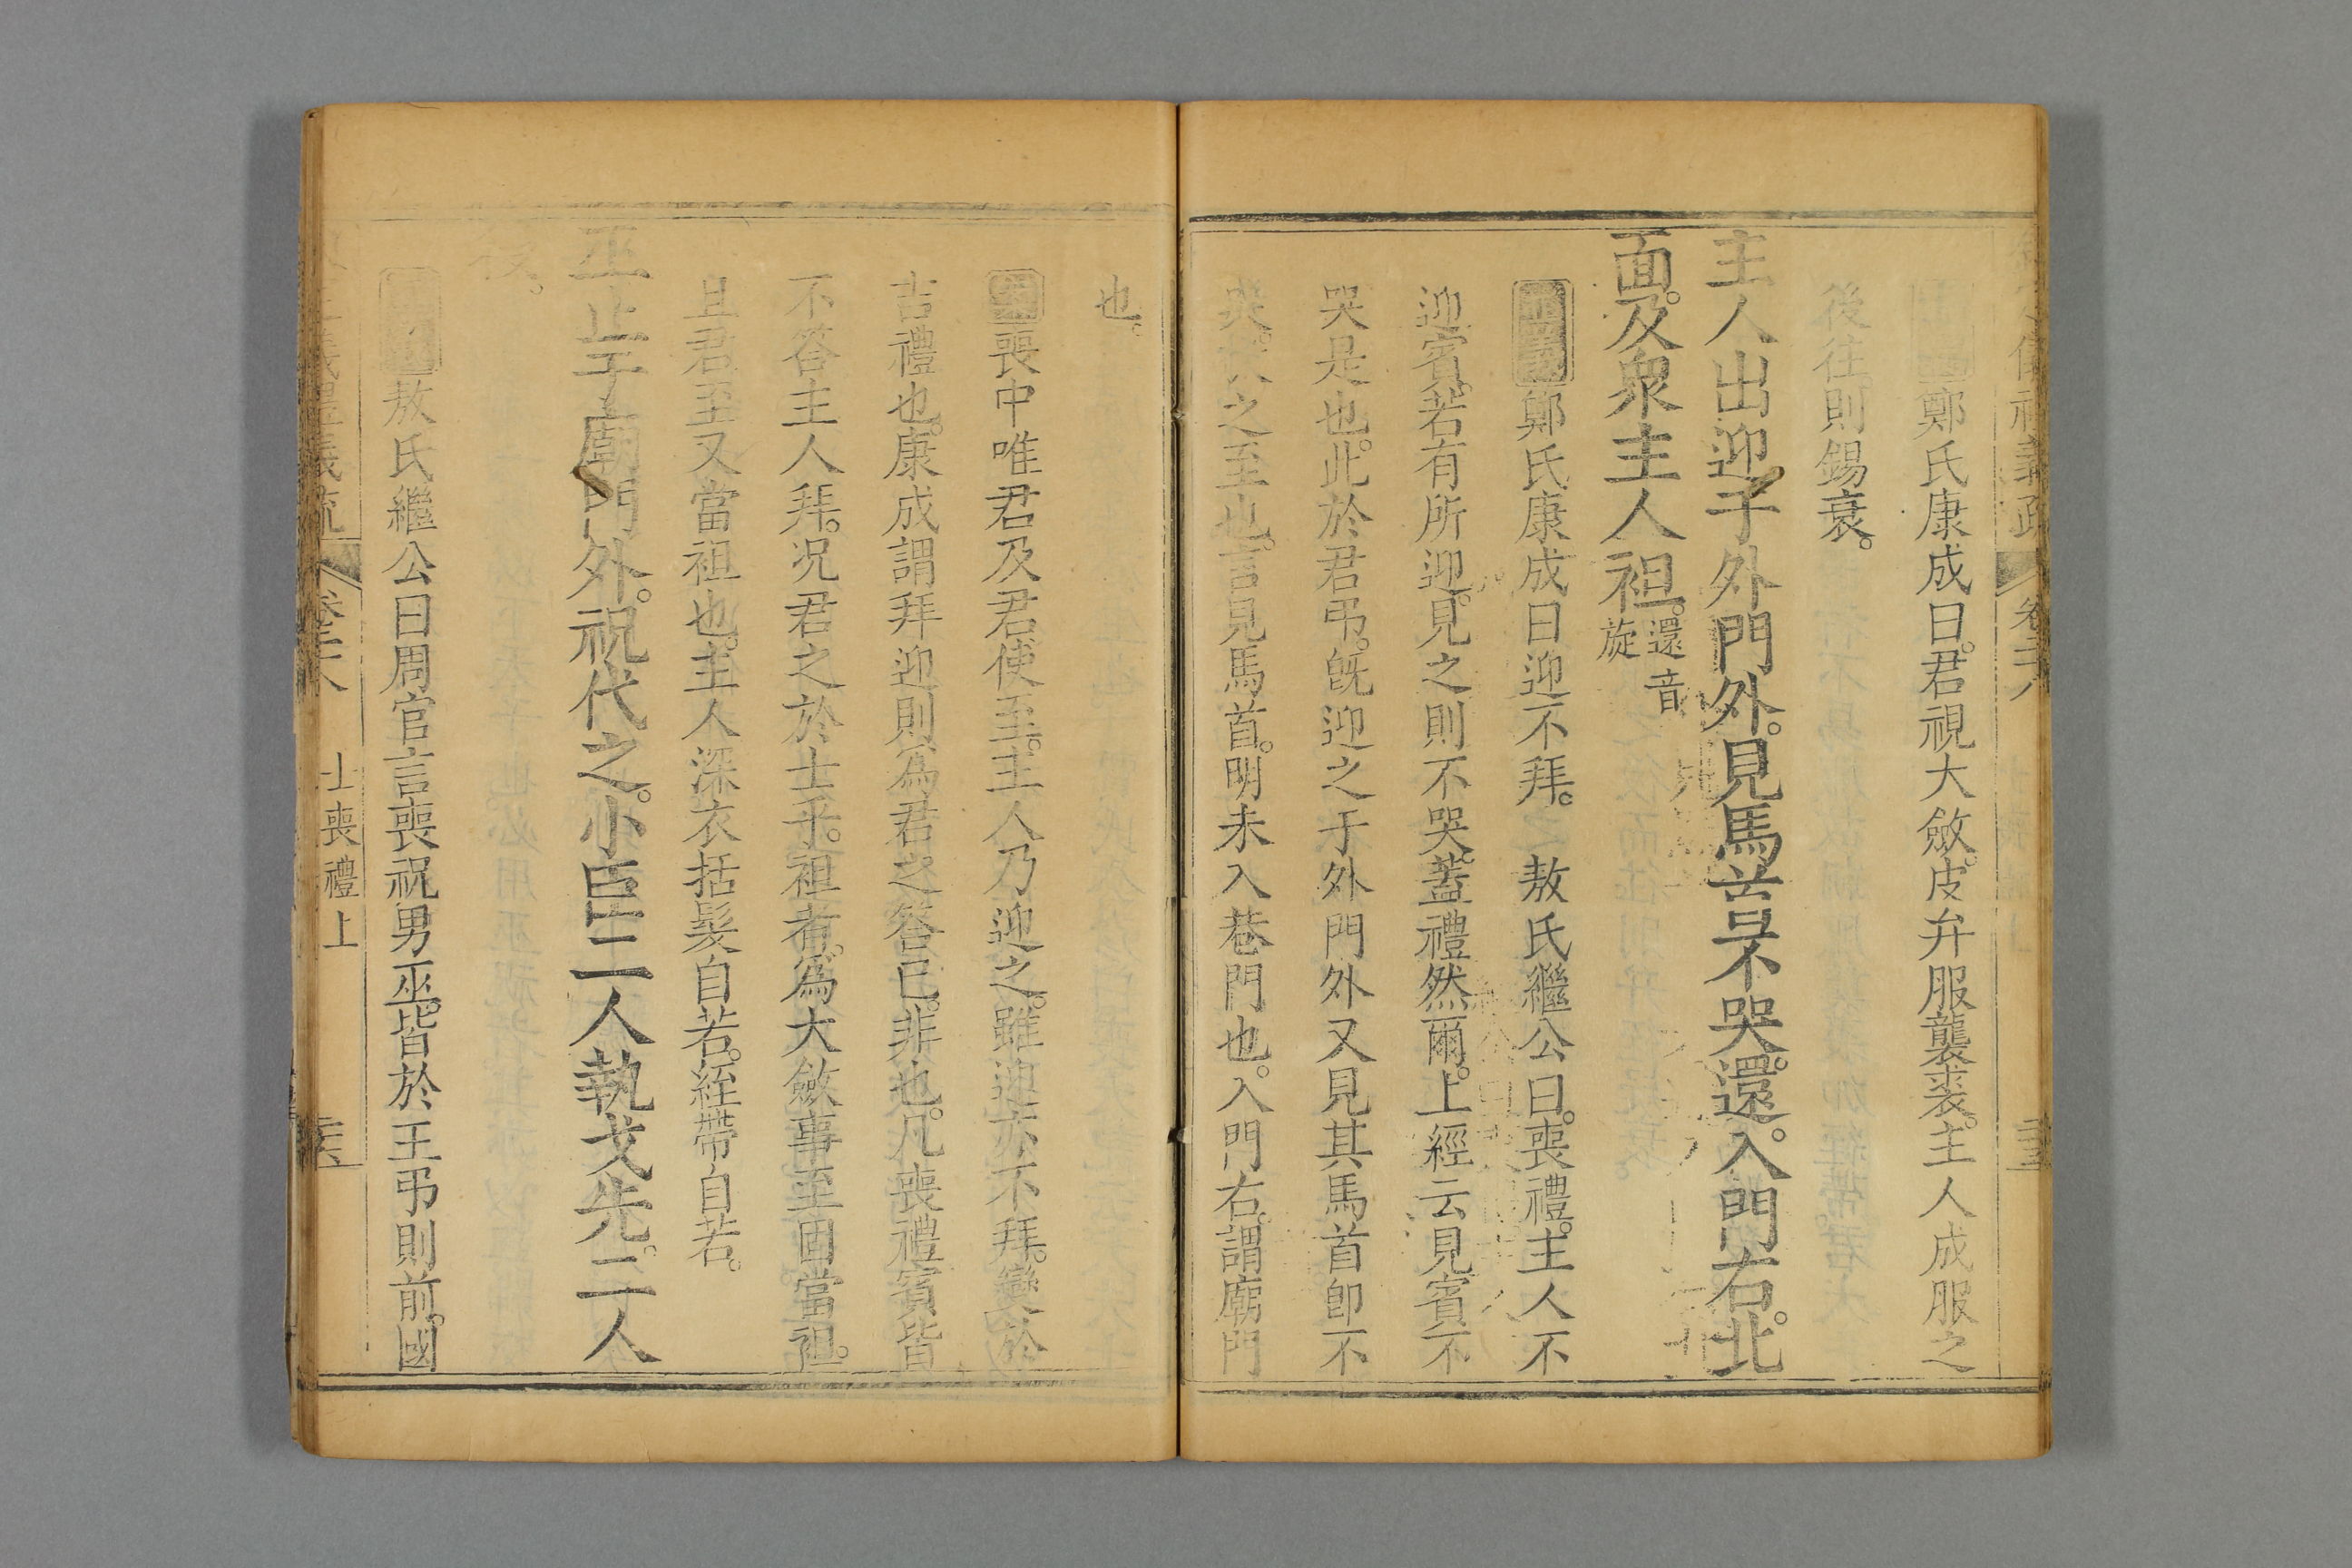 鄭氏康成曰。君視大斂。皮弁服襲裘。主人成服之
後往則錫衰。
主人出迎于外門外。見馬首不哭。還。入門右。北
面。及衆主人袒。還音旋
正義鄭氏康成曰迎不拜。敖氏繼公曰。喪禮。主人不
迎賓。若有所迎。見之則不哭。蓋禮然爾。上經云見賓不
哭是也。此於君弔。旣迎之于外門外又見其馬首卽不
哭。之至也。言見馬首。明未入巷門也。入門右。謂廟門
也。
喪中唯君及君使至。主人乃迎之。雖迎亦不拜。變於
吉禮也。康成謂拜迎則爲君之答已。非也。凡喪禮賓皆
不答主人拜。况君之於士乎。袒者。爲大斂事至固當袒。
且君至又當袒也。主人深衣括髮自若。絰帶自若。
巫止于廟門外。祝代之。小臣二人執戈先。二人
後。
敖氏繼公曰周官言喪祝男巫。皆於王弔則前。國
卷二十八
士喪禮上